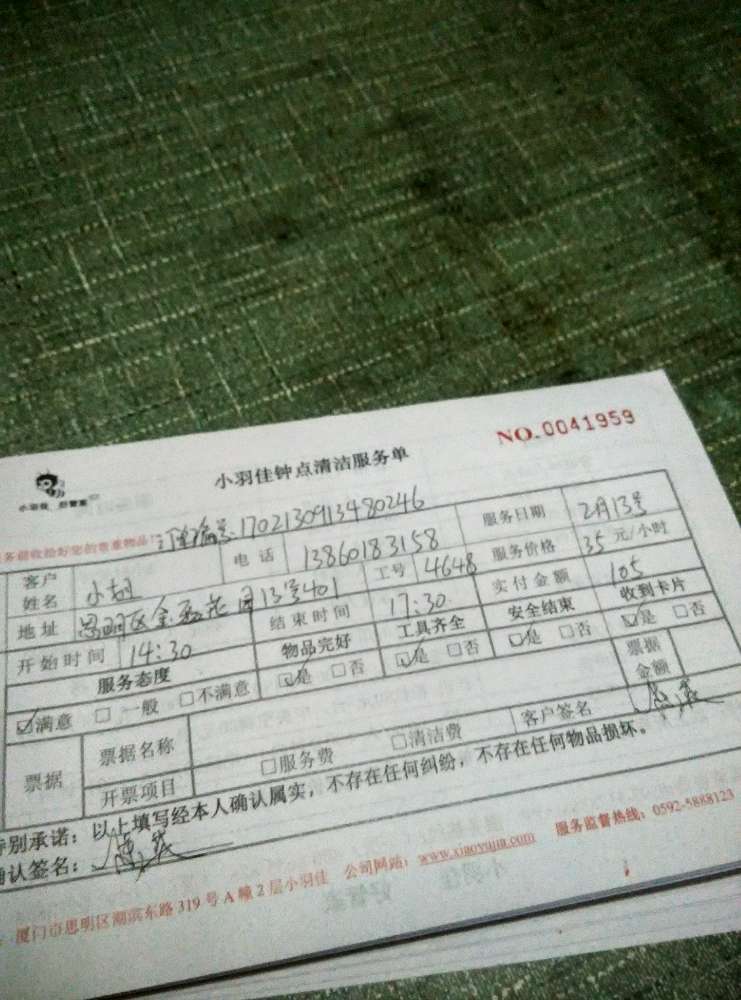 NO.0041959
小羽佳钟点清洁服务单
小羽佳 好管家
务前收拾好您的贵重物品! 订单编号:1702130913480246
服务日期 2月13号
客户姓名 小胡 电话 13860183158 服务价格 35元/小时
地址 思明区金 花园13号401 工号 4648 实付金额 105
开始时间 14:30 结束时间 17:30
服务态度 物品完好 工具齐全 安全结束 收到卡片
☑满意 □一般 □不满意 ☑是 □否 ☑是 □否 ☑是 □否 ☑是 □否
票据 票据名称 票据金额
开票项目 □服务费 □清洁费 客户签名
特别承诺:以上填写经本人确认属实,不存在任何纠纷,不存在任何物品损坏。
确认签名:
厦门市思明区湖滨东路319号A幢2层小羽佳 公司网站:www.xiaoyujia.com 服务监督热线:0592-5888123